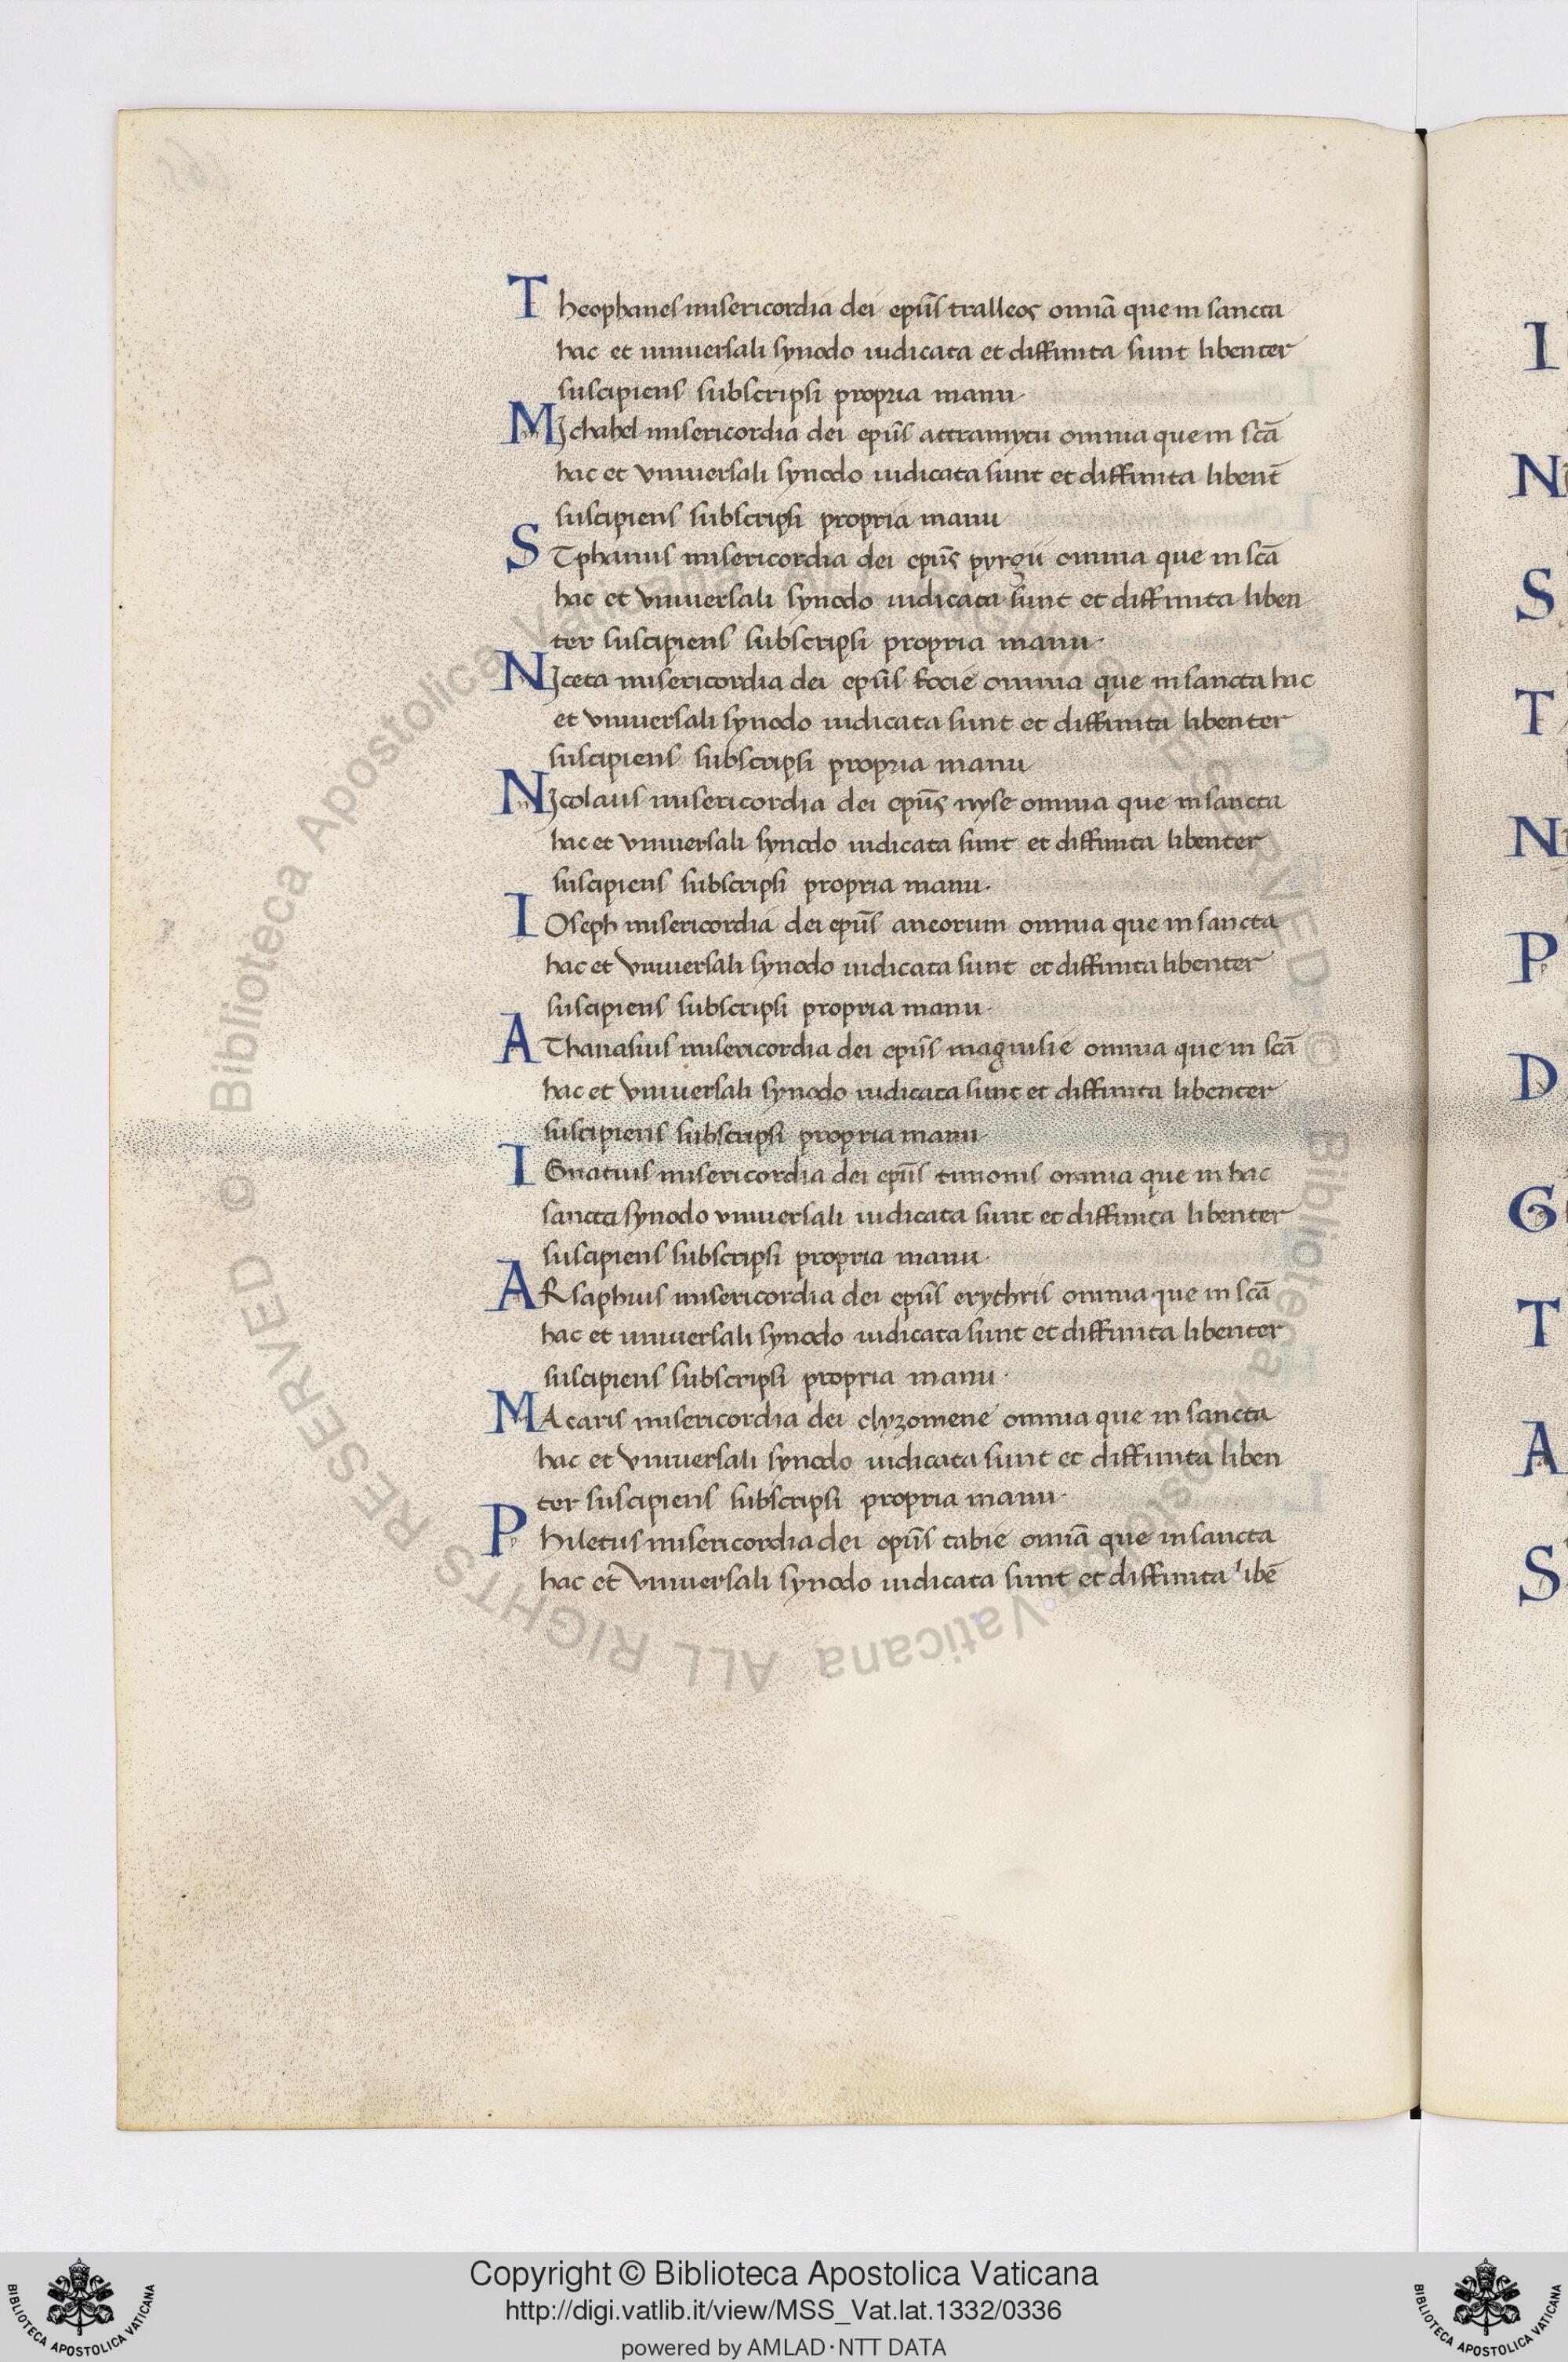 Theophanes misericordia dei ep̄us tralleos omīa que in sancta
hac et uniuersali synodo iudicata et diffinita sunt libenter
suscipiens subscripsi propria manu·
MIchahel misericordia dei ep̄us attramytii omnia que in sc̄a
hac et vniuersali synodo iudicata sunt et diffinita libent̄
suscipiens subscripsi propria manu
STphanus misericordia dei ep̄us pyrgii omnia que in sc̄a
hac et vniuersali synodo iudicata sunt et diffinita liben
ter suscipiens subscripsi propria manu·
NIceta misericordia dei ep̄us focie omnia que in sancta hac
et vniuersali synodo iudicata sunt et diffinita libenter
suscipiens subscripsi propria manu
NIcolaus misericordia dei ep̄us nyse omnia que in sancta
hac et vniuersali synodo iudicata sunt et diffinita libenter
suscipiens subscripsi propria manu·
IOseph misericordia dei ep̄us aneorum omnia que in sancta
hac et vniuersali synodo iudicata sunt et diffinita libenter
suscipiens subscripsi propria manu·
AThanasius misericordia dei ep̄us magnisie omnia que in sc̄a
hac et vniuersali synodo iudicata sunt et diffinita libenter
suscipiens subscripsi propria manu·
IGnatius misericordia dei ep̄us timonis omnia que in hac
sancta synodo vniuersali iudicata sunt et diffinita libenter
suscipiens subscripsi propria manu·
ARsaphius misericordia dei ep̄us erythris omnia que in sc̄a
hac et uniuersali synodo iudicata sunt et diffinita libenter
suscipiens subscripsi propria manu·
MAcaris misericordia dei clyzomene omnia que in sancta
hac et vniuersali synodo iudicata sunt et diffinita liben
ter suscipiens subscripsi propria manu·
Philetus misericordia dei ep̄us tabie omīa que in sancta
hac et vniuersali synodo iudicata sunt et diffinita libē
I
N
S
T
N
P
D
G
T
A
S
© Biblioteca Apostolica Vaticana ALL RIGHTS RESERVED © Biblioteca Apostolica Vaticana ALL RIGHTS RESERVED
Copyright © Biblioteca Apostolica Vaticana
http://digi.vatlib.it/view/MSS_Vat.lat.1332/0336
powered by AMLAD·NTT DATA
BIBLIOTECA APOSTOLICA VATICANA
BIBLIOTECA APOSTOLICA VATICANA